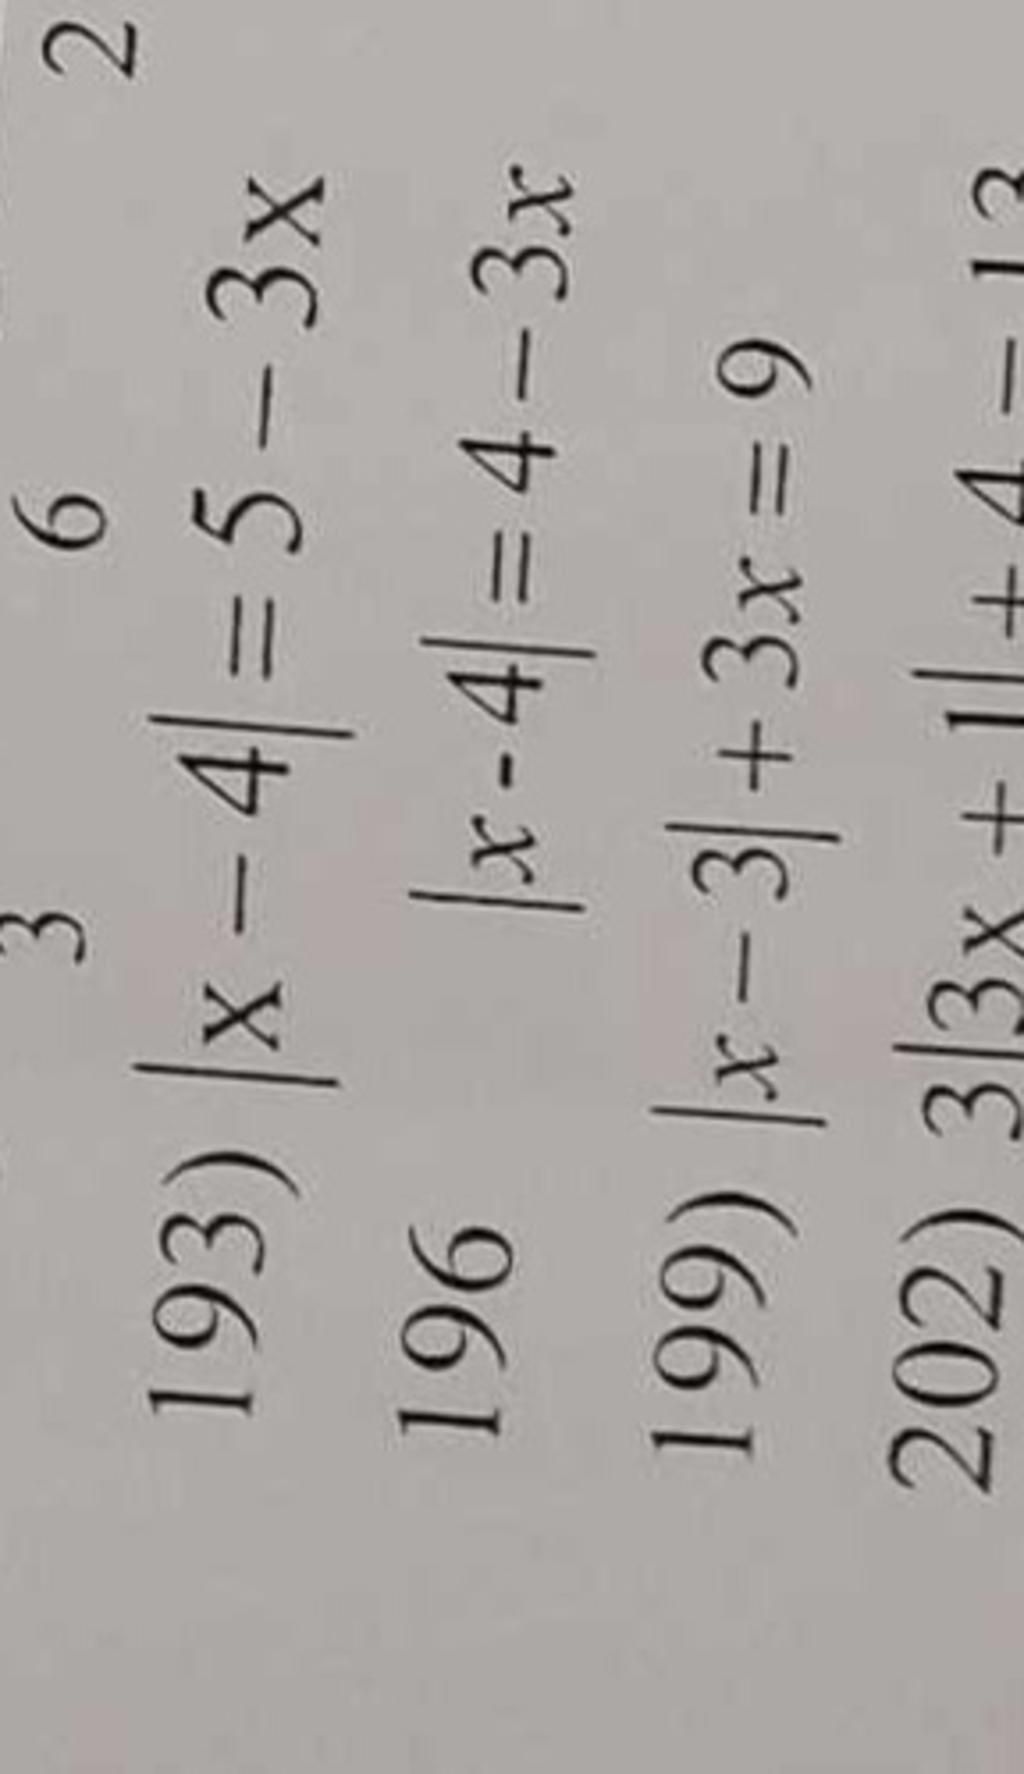 3 6 2
193) |x – 4| = 5 – 3x
196 |x - 4| = 4 – 3x
199) |x – 3| + 3x = 9
202) 3|3x + 1| + 4 = 13